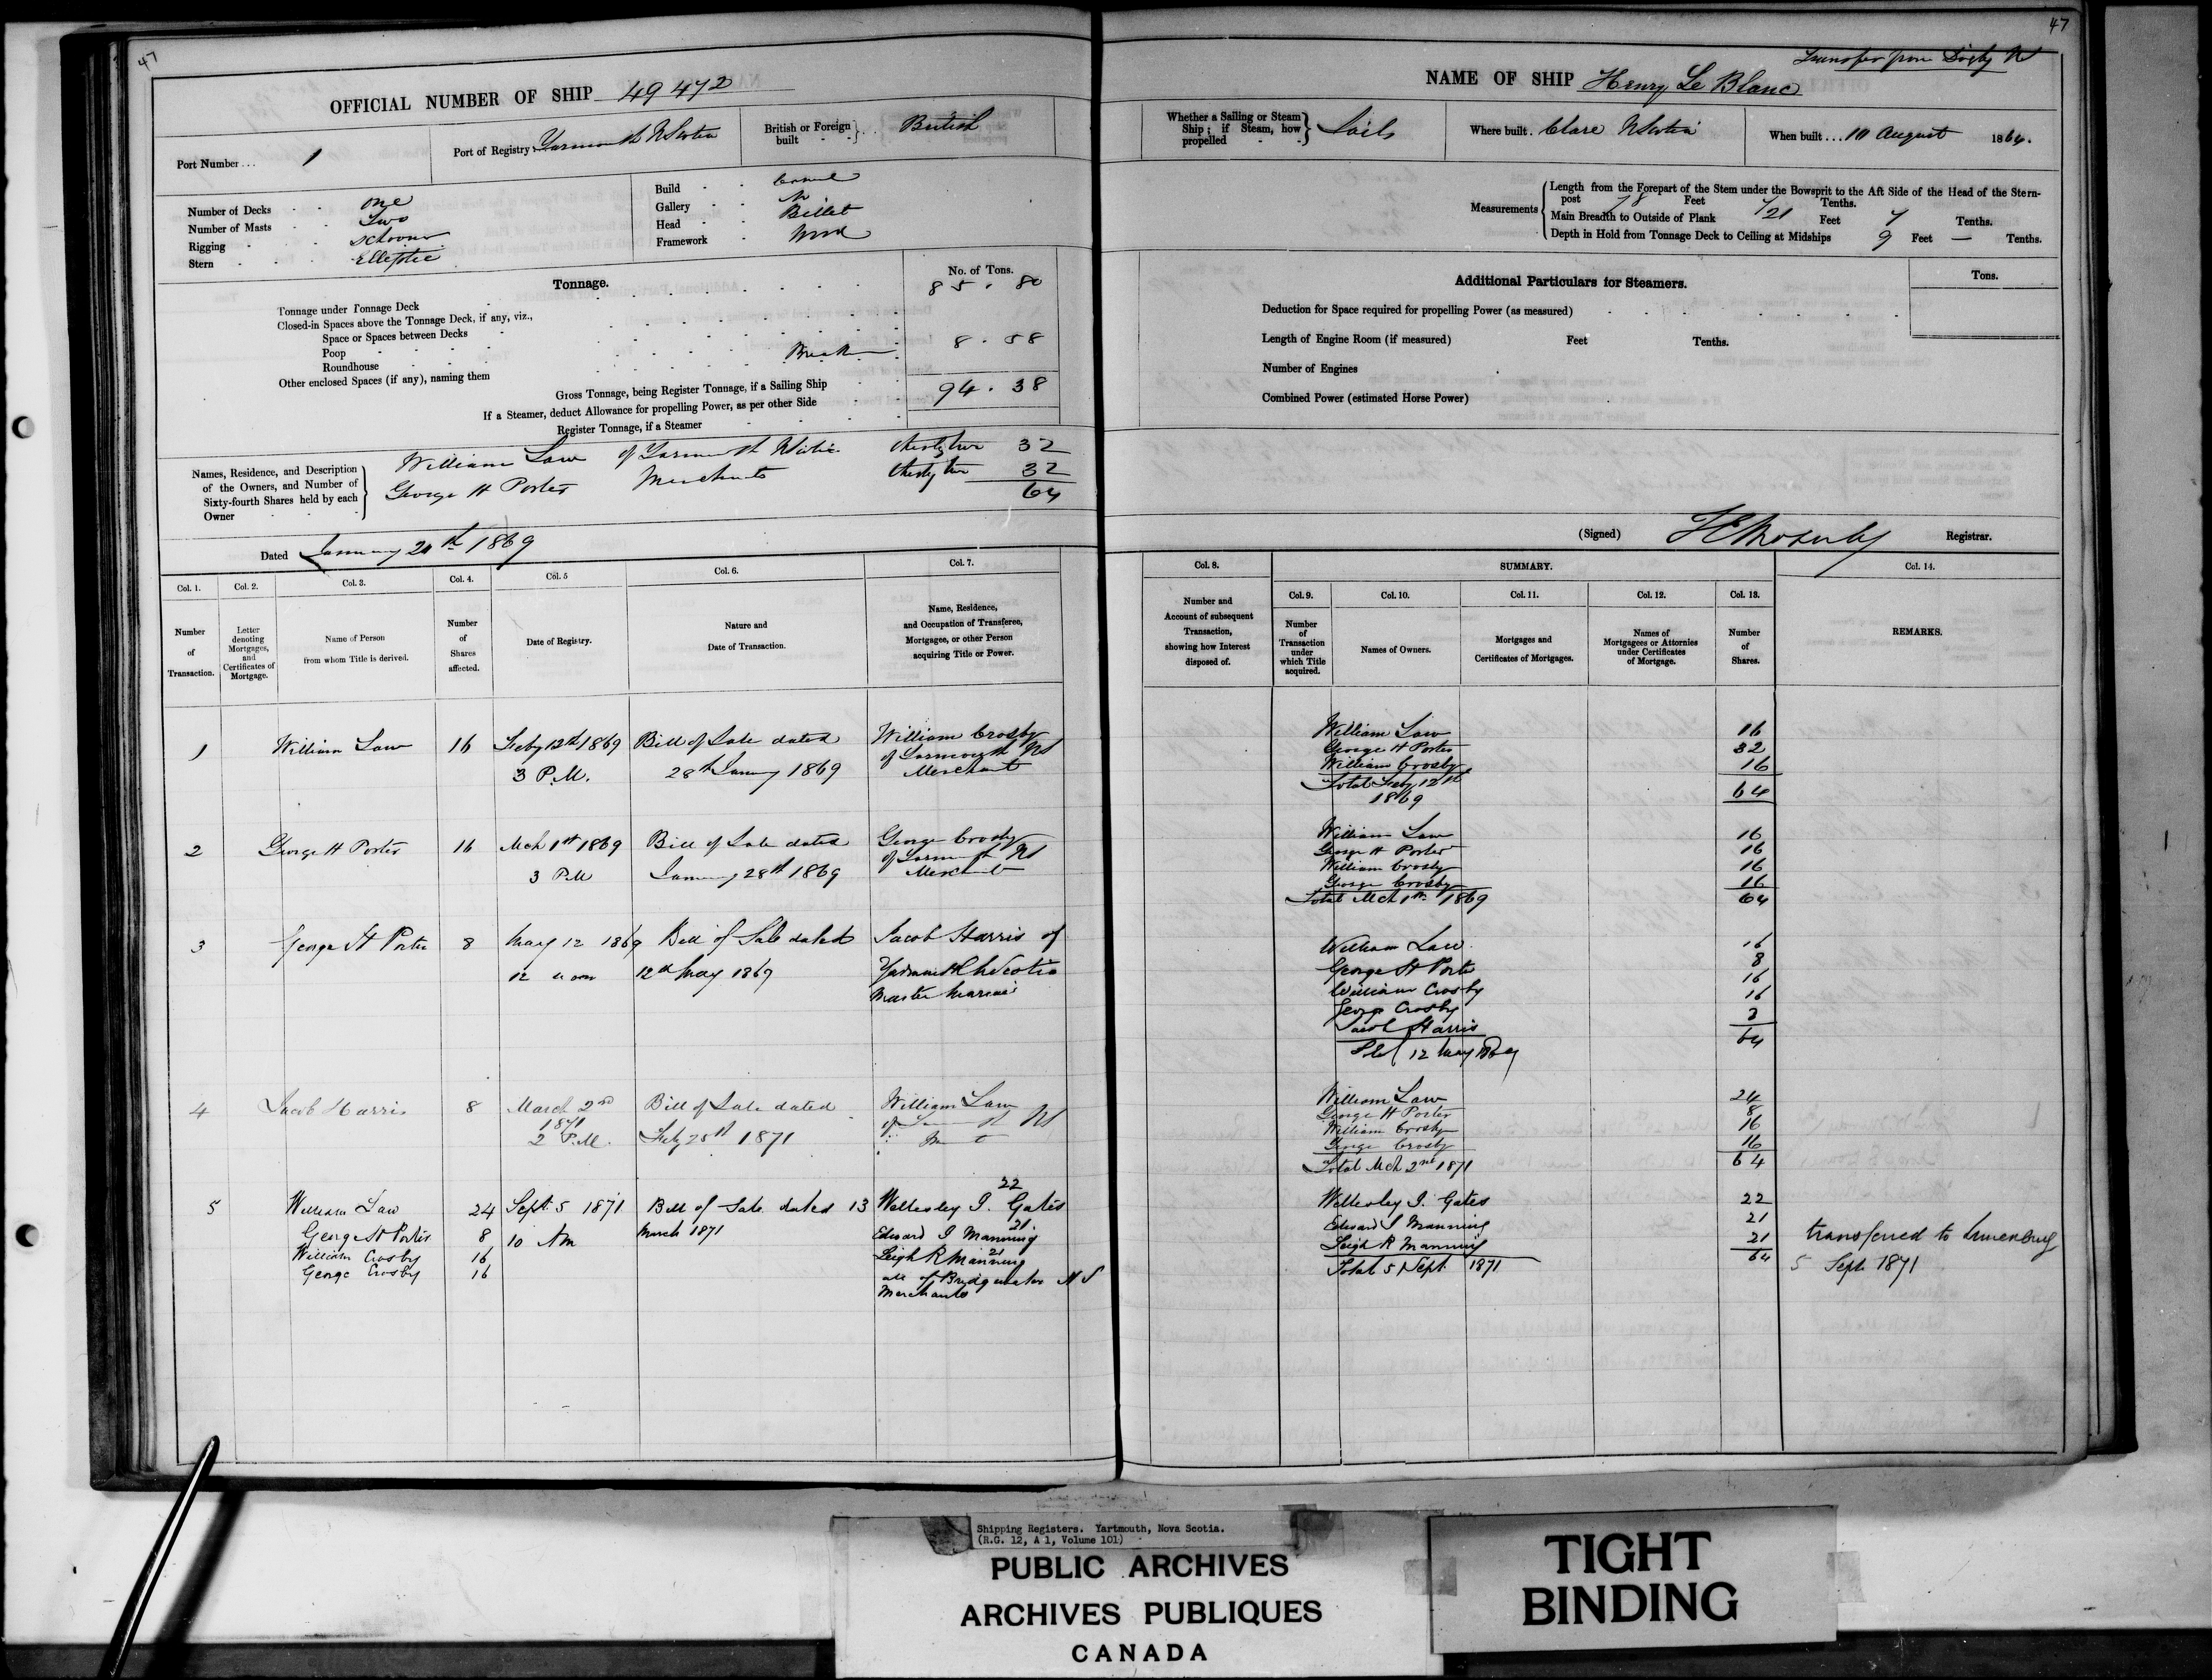 47
OFFICIAL NUMBER OF SHIP 49472
Port Number... 1
Port of Registry Yarmouth N Scotia
British or Foreign built British
Number of Decks one
Number of Masts Two
Rigging Schooner
Stern Elliptic
Build Carvel
Gallery No
Head Billet
Framework Wood
Tonnage.
No. of Tons.
Tonnage under Tonnage Deck 85 . 80
Closed-in Spaces above the Tonnage Deck, if any, viz.,
Space or Spaces between Decks
Poop
Roundhouse Break 8 . 58
Other enclosed Spaces (if any), naming them
Gross Tonnage, being Register Tonnage, if a Sailing Ship 94 . 38
If a Steamer, deduct Allowance for propelling Power, as per other Side
Register Tonnage, if a Steamer
Names, Residence, and Description of the Owners, and Number of Sixty-fourth Shares held by each Owner
William Law of Yarmouth N Scotia thirty two 32
George H Porter Merchants thirty two 32
64
Dated January 20th 1869
Col. 1. Col. 2. Col. 3. Col. 4. Col. 5 Col. 6. Col. 7.
Number of Transaction.
Letter denoting Mortgages, and Certificates of Mortgage.
Name of Person from whom Title is derived.
Number of Shares affected.
Date of Registry.
Nature and Date of Transaction.
Name, Residence, and Occupation of Transferee, Mortgagee, or other Person acquiring Title or Power.
1 William Law 16 Feby 12th 1869 Bill of Sale dated William Crosby
3 P.M. 28th January 1869 of Yarmouth NS
Merchant
2 George H Porter 16 Mch 1st 1869 Bill of Sale dated George Crosby
3 P.M January 28th 1869 of Yarmouth NS
Merchant
3 George H Porter 8 May 12 1869 Bill of Sale dated Jacob Harris of
12 noon 12th May 1869 Yarmouth N Scotia
Master Mariner
4 Jacob Harris 8 March 2nd Bill of Sale dated William Law
1871
2 P.M. Feby 28th 1871
5 William Law 24 Sept 5 1871 Bill of Sale dated 13 Wellesley J. Gates 22
George H Porter 8 10 AM March 1871 Edward J Manning 21.
William Crosby 16 Leigh R Manning 21
George Crosby 16 all of Bridgewater N S
Merchants
47
Transfer from Digby N
NAME OF SHIP Henry Le Blanc
Whether a Sailing or Steam Ship; if Steam, how propelled Sails
Where built. Clare N Scotia
When built... 10 August 1864.
Measurements
Length from the Forepart of the Stem under the Bowsprit to the Aft Side of the Head of the Stern-
post 78 Feet 7 Tenths.
Main Breadth to Outside of Plank 21 Feet 7 Tenths.
Depth in Hold from Tonnage Deck to Ceiling at Midships 9 Feet — Tenths.
Additional Particulars for Steamers.
Tons.
Deduction for Space required for propelling Power (as measured)
Length of Engine Room (if measured) Feet Tenths.
Number of Engines
Combined Power (estimated Horse Power)
(Signed) Registrar.
Col. 8. SUMMARY. Col. 14.
Col. 9. Col. 10. Col. 11. Col. 12. Col. 13.
Number and Account of subsequent Transaction, showing how Interest disposed of.
Number of Transaction under which Title acquired.
Names of Owners.
Mortgages and Certificates of Mortgages.
Names of Mortgagees or Attornies under Certificates of Mortgage.
Number of Shares.
REMARKS.
William Law 16
George H Porter 32
William Crosby 16
Total Feby 12th 64
1869
William Law 16
George H Porter 16
William Crosby 16
George Crosby 16
Total Mch 1st 1869 64
William Law 16
George H Porter 8
William Crosby 16
George Crosby 16
Jacob Harris 8
12 May 1869 64
William Law 24
George H Porter 8
William Crosby 16
George Crosby 16
Total Mch 2nd 1871 64
Wellesley J. Gates 22
Edward J Manning 21
Leigh R Manning 21
Total 5 Sept 1871 64
transferred to Lunenburg
5 Sept 1871
Shipping Registers. Yartmouth, Nova Scotia.
(R.G. 12, A 1, Volume 101)
PUBLIC ARCHIVES
ARCHIVES PUBLIQUES
CANADA
TIGHT
BINDING